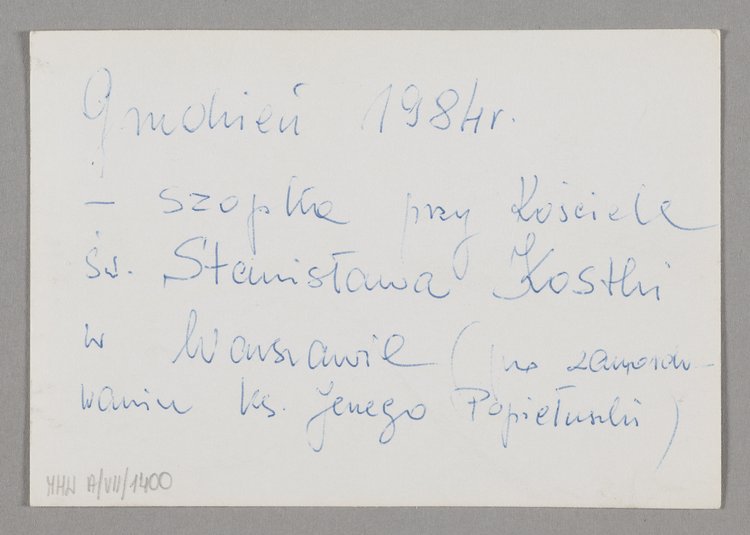 Grudzień 1984r.
- szopka przy Kościele
św. Stanisława Kostki
w Warszawie (po zamordo-
waniu ks. Jerzego Popiełuszki)
MHW A/VII/1400